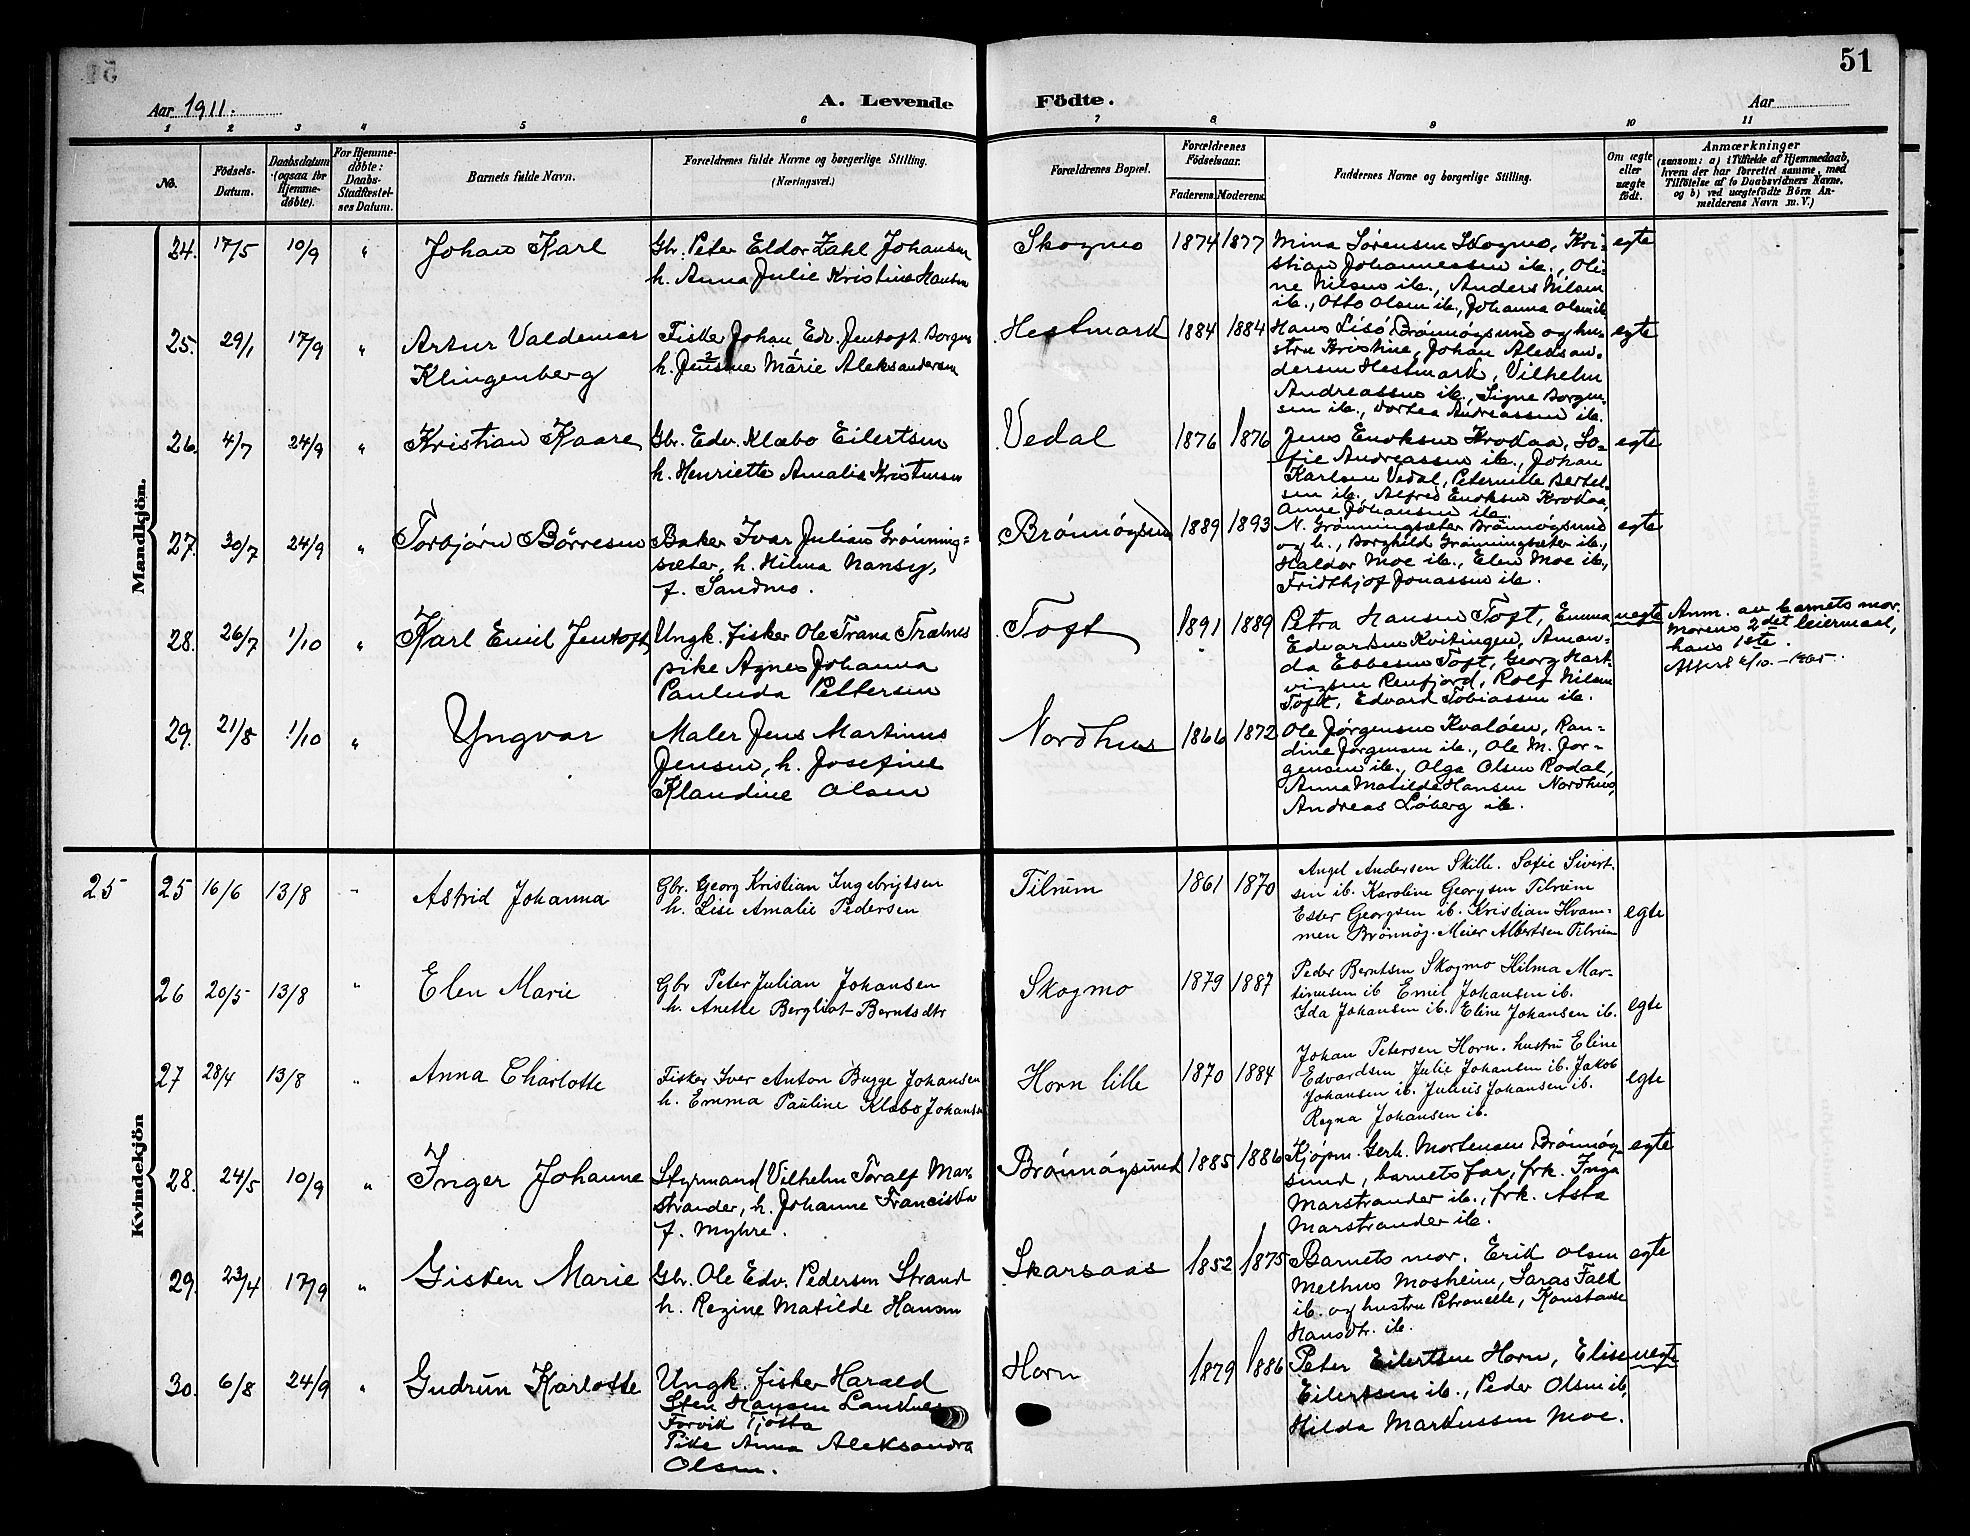 51
Aar 1911.
A. Levende Födte.
Aar
1 2 3 4 5 6 7 8 9 10 11
No.
Födsels-
Datum.
Daabsdatum
(ogsaa for
Hjemme-
døbte).
For Hjemme-
døbte:
Daabs-
Stadfæstel-
ses Datum.
Barnets fulde Navn.
Forældrenes fulde Navne og borgerlige Stilling.
(Næringsvei.)
Forældrenes Bopæl.
Forældrenes
Fødselsaar.
Faderens. Moderens.
Faddernes Navne og borgerlige Stilling.
Om ægte
eller
uægte
födt.
Anmærkninger
(saasom: a) i Tilfælde af Hjemmedaab,
hvem der har forrettet samme, med
Tilföielse af to Daabsvidners Navne,
og b) ved uægtefödte Börn An-
melderens Navn m. V.)
Mandkjön.
24. 17/5 10/9 " Johan Karl
Gbr. Peter Eldor Zahl Johansen
h. Anna Julie Kristine Hansen
Skogmo 1874 1877
Mina Sørensen Skogmo, Kri-
stian Johannessen ib., Oli-
ne Nilsen ib., Anders Nilsen
ib., Otto Olsen ib., Johanna Olsen ib
egte
25. 29/1 17/9 " Artur Valdemar
Klingenberg
Fisker Johan Edv. Jentoft Borgen
h. Jensine 2 Marie 1 Aleksandersen
Hestmark 1884 1884
Hans Lisö Brönnögsund og hu-
stru Kristine, Johan Aleksan-
dersen Hestmark, Vilhelm
Andreassen ib., Signe Borgen-
sen ib., Dortea Andreassen ib.
egte
26. 4/7 24/9 " Kristian Kaare
Gbr. Edv. Klæbo Eilertsen
h. Henriette Amalia Kristensen
Vedal 1876 1876
Jens Enoksen Krokaa, So-
fie Andreassen ib., Johan
Karlsen Vedal, Peternille Bertel-
sen ib., Alfred Enoksen Krokaa,
Anne Johansen ib.
egte
27. 30/7 24/9 " Torbjørn Börresen
Baker Ivar Julian Grönning-
sæter, h. Hilma Nansy,
f. Sandmo.
Brönnögsund 1889 1893
N. Grönningsæter Brönnögsund
og h., Borghild Grönningsæter ib.,
Haldor Moe ib., Elen Moe ib.,
Fridthjof Jonassen ib.
egte
28. 26/7 1/10 " Karl Emil Jentoft
Ungk. fisker Ole Trana Trælnes
pike Agnes Johanna
Paulida Pettersen
Toft 1891 1889
Petra Hansen Toft, Emma
Edvardsen Kvitingen, Aman-
da Ebbesen Toft, Georg Hart-
vigsen Renfjord, Rolf Nilsen
Toft, Edvard Tobiassen ib.
uegte
Anm. av barnets mor.
Morens 2det leiermaal,
hans 1ste.
Attest 6/10 - 1905.
29. 21/8 1/10 " Yngvar
Maler Jens Martinus
Jensen, h. Josefine
Klaudine Olsen
Nordhus 1866 1872
Ole Jörgensen Kvalöen, Ran-
dine Jørgensen ib., Ole M. Jör-
gensen ib., Olga Olsen Rodal,
Anna Matilde Hansen Nordhus,
Andreas Löberg ib.
Kvindekjön
25 25 16/6 13/8 " Astrid Johanna
Gbr. Georg Kristian Ingebrigtsen
h. Lise Amalie Pedersen
Tilrum 1861 1870
Angel Andersen Skille. Sofie Sivert-
sen ib. Karoline Georgsen Tilrum
Ester Georgsen ib. Kristian Hvam-
men Brönnög. Meier Albertsen Tilrum
egte
26 20/5 13/8 " Elen Marie
Gbr Peter Julian Johansen
h. Anette Bergliot Berntsdtr
Skogmo 1879 1887
Peder Berntsen Skogmo Hilma Mar-
tinusen ib Emil Johansen ib.
Ida Johansen ib. Eline Johansen ib.
egte
27 28/4 13/8 " Anna Charlotte
Fisker Iver Anton Bugge Johansen
h. Emma Pauline Klæbo Johansen
Horn lille 1870 1884
Johan Petersen Horn. hustru Eline
Edvardsen Julie Johansen ib. Jakob
Johansen ib. Julius Johansen ib.
Regna Johansen ib.
egte
28. 24/5 10/9 " Inger Johanne
Styrmand Vilhelm Toralf Mar-
strander, h. Johanne Franciska
f. Myhre.
Brönnögsund 1885 1886
Kjöpm. Gerh. Mortensen Brönnög-
sund, barnets far, frk. Inga
Marstrander ib., frk. Asta
Marstrander ib.
egte
29. 23/4 17/9 " Gisken Marie
Gbr. Ole Edv. Pedersen Strand
h. Regine Matilde Hansen
Skarsaas 1852 1875
Barnets mor. Erik Olsen
Melhus Mosheim, Saras Falk
ib. og hustru Petronelle, Konstanse
Hansdtr. ib.
egte
30. 6/8 24/9 " Gudrun Karlotte
Ungk. fisker Harald
Sten Hansen
Forvik Tjötta
Pike Anna Aleksandra
Olsen.
Horn 1879 1886
Peter Eilertsen Horn, Elise
Eilertsen ib., Peder Olsen ib,
Hilda Markussen Moe.
uegte